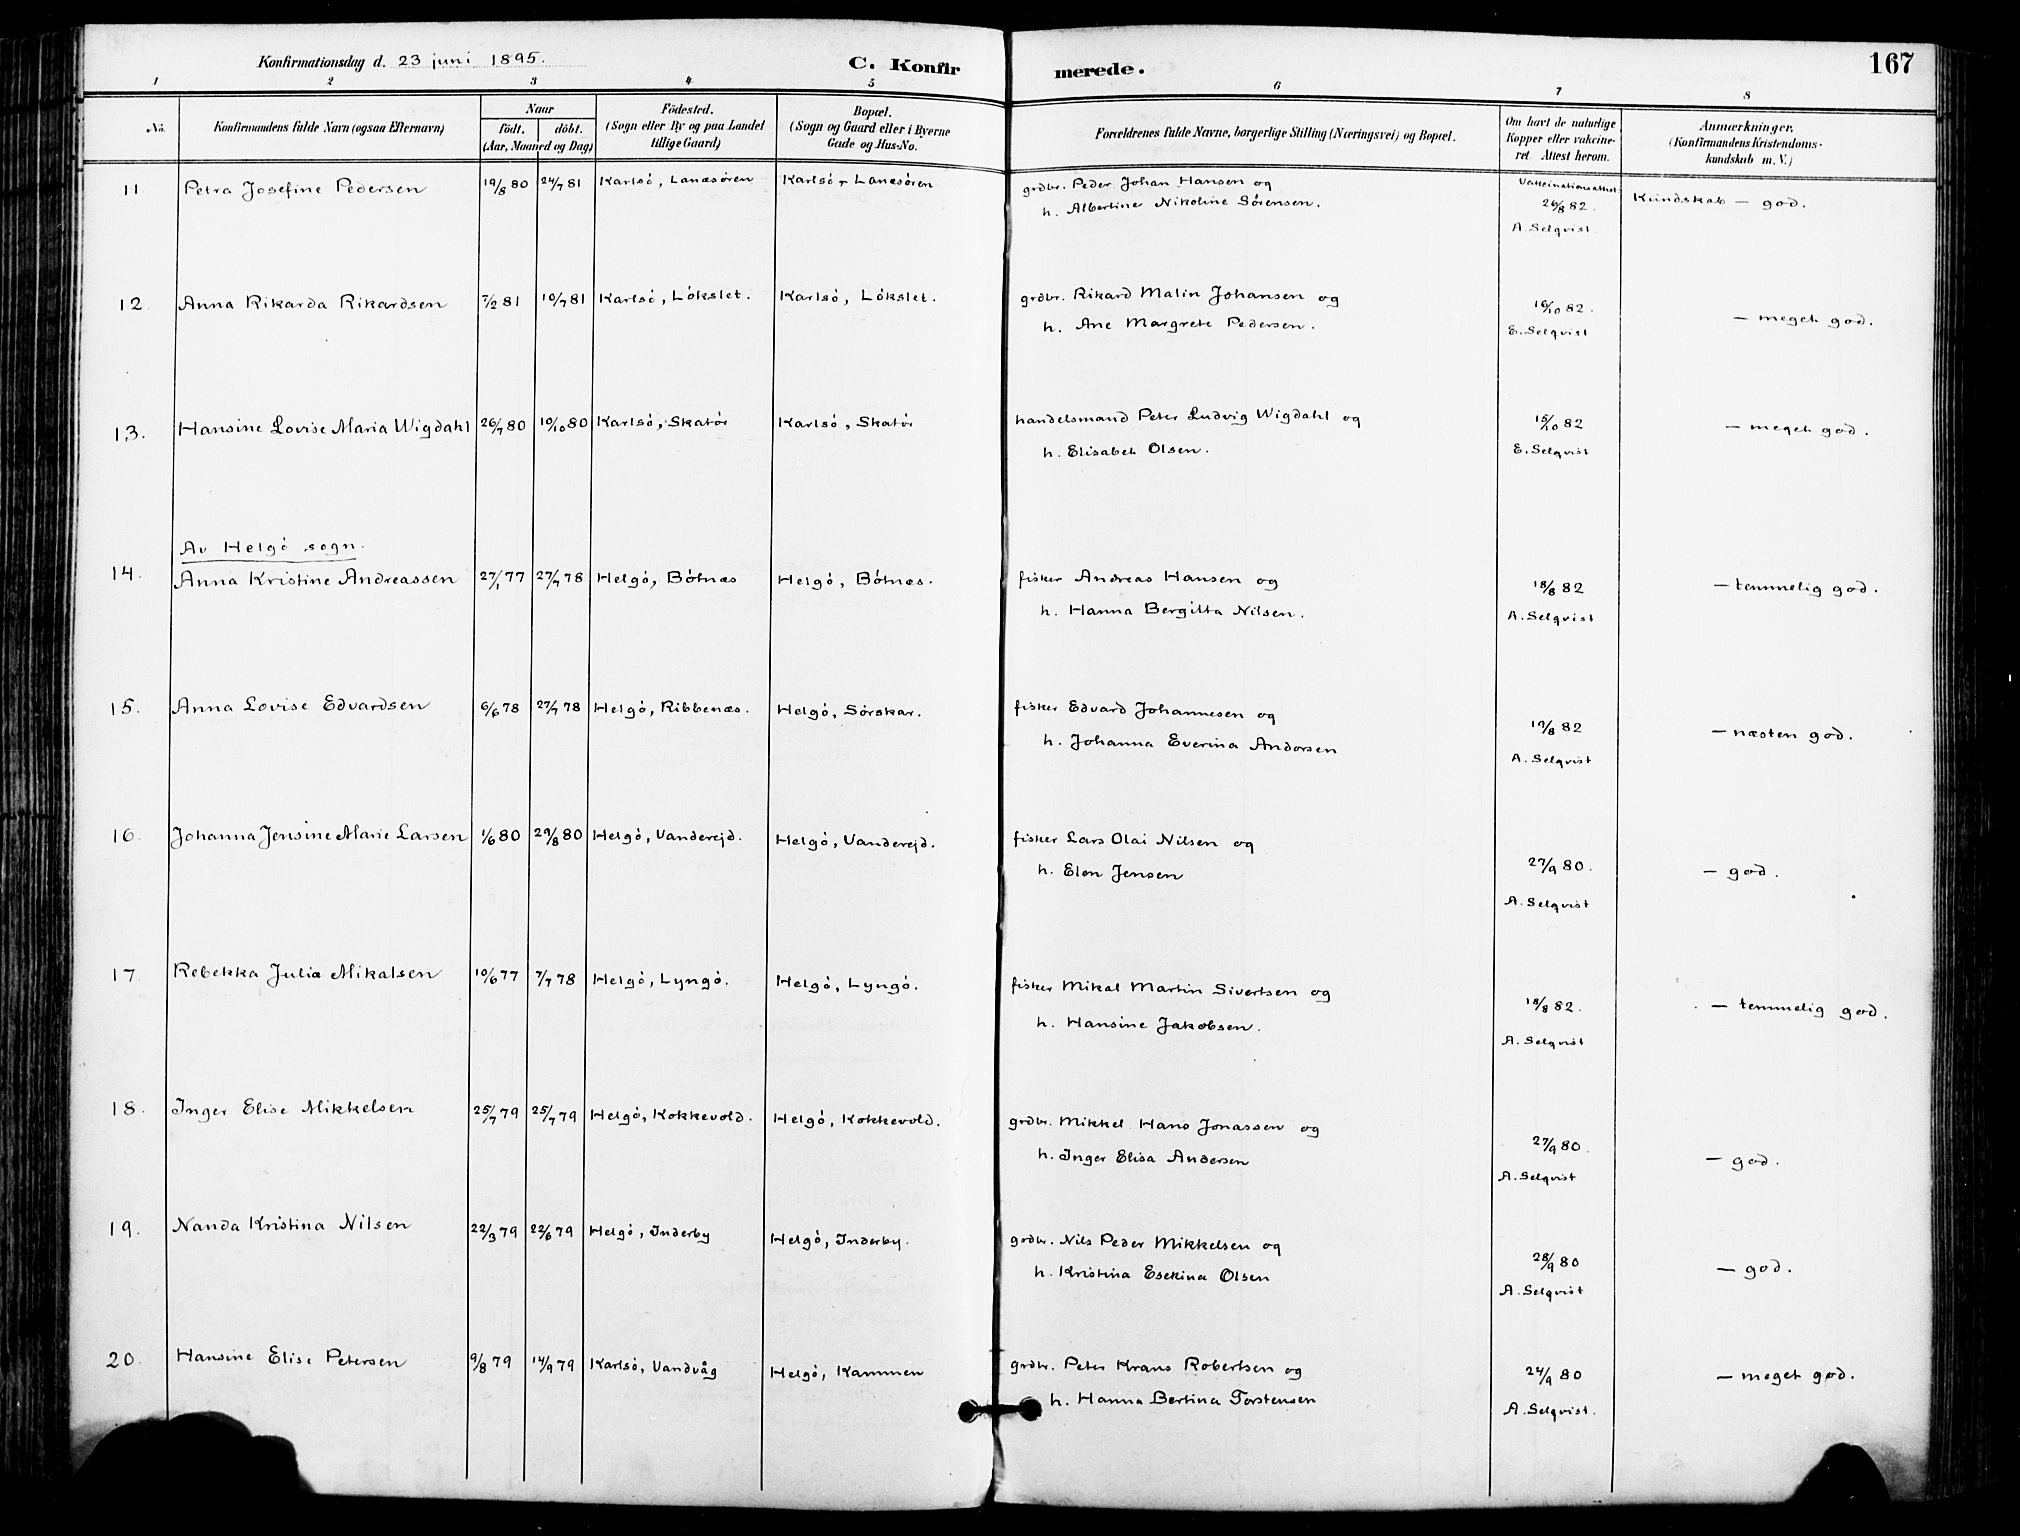 Konfirmationsdag d. 23 juni 1895.
C. Konfir
merede.
167
1 2 3 4 5 6 7 8
No.
Konfirmandens fulde Navn (ogsaa Efternavn)
Naar
födt. döbt.
(Aar, Maaned og Dag)
Födested.
(Sogn eller By og paa Landet
tillige Gaard)
Bopæl.
(Sogn og Gaard eller i Byerne
Gade og Hus-No.
Forældrenes fulde Navne, borgerlige Stilling (Næringsvei) og Bopæl.
Om havt de naturlige
Kopper eller vakcine-
ret Attest herom.
Anmærkninger.
(Konfirmandens Kristendoms-
kundskab m. V.)
11. Petra Josefine Pedersen 19/8 80 24/7 81 Karlsö, Lanæsören Karlsö, Lanæsören grdbr. Peder Johan Hansen og
h. Albertine Nikoline Sörensen.
Vakcinationsattest
26/8 82.
A. Selqvist.
Kundskab — god.
12. Anna Rikarda Rikardsen 7/2 81 10/7 81 Karlsö, Lökslet. Karlsö, Lökslet. grdbr. Rikard Malin Johansen og
h. Ane Margrete Pedersen.
16/10 82.
E. Selqvist
— meget god.
13. Hansine Lovise Maria Wigdahl 26/7 80 10/10 80 Karlsö, Skatör Karlsö, Skatör handelsmand Peter Ludvig Wigdahl og
h. Elisabet Olsen.
15/10 82
E. Selqvist
— meget god.
Av Helgö sogn.
14. Anna Kristine Andreassen 27/1 77 27/7 78 Helgö, Bötnæs Helgö, Bötnæs. fisker Andreas Hansen og
h. Hanna Bergitta Nilsen.
18/8 82
A. Selqvist
— temmelig god.
15. Anna Lovise Edvardsen 6/6 78 27/7 78 Helgö, Ribbenæs. Helgö, Sörskar. fisker Edvard Johannesen og
h. Johanna Everina Andorsen
19/8 82
A. Selqvist
— næsten god.
16. Johanna Jensine Marie Larsen 1/6 80 29/8 80 Helgö, Vanderejd. Helgö, Vanderejd. fisker Lars Olai Nilsen og
h. Elen Jensen
27/9 80.
A. Selqvist
— god.
17. Rebekka Julia Mikalsen 10/6 77 7/7 78 Helgö, Lyngö. Helgö, Lyngö. fisker Mikal Martin Sivertsen og
h. Hansine Jakobsen.
18/8 82.
A. Selqvist
— temmelig god.
18. Inger Elise Mikkelsen 25/7 79 25/7 79 Helgö, Kokkevold. Helgö, Kokkevold. grdbr. Mikkel Hans Jonassen og
h. Inger Elisa Andersen
27/9 80.
A. Selqvist
— god.
19. Nanda Kristina Nilsen 22/3 79 22/6 79 Helgö, Inderby Helgö, Inderby. grdbr. Nils Peder Mikkelsen og
h. Kristina Esekina Olsen
28/9 80
A. Selqvist
— god.
20. Hansine Elise Petersen 9/8 79 14/9 79 Karlsö, Vandvåg Helgö, Kammen grdbr. Peter Krans Robertsen og
h. Hanna Bertina Torstensen
24/9 80
A. Selqvist.
— meget god.